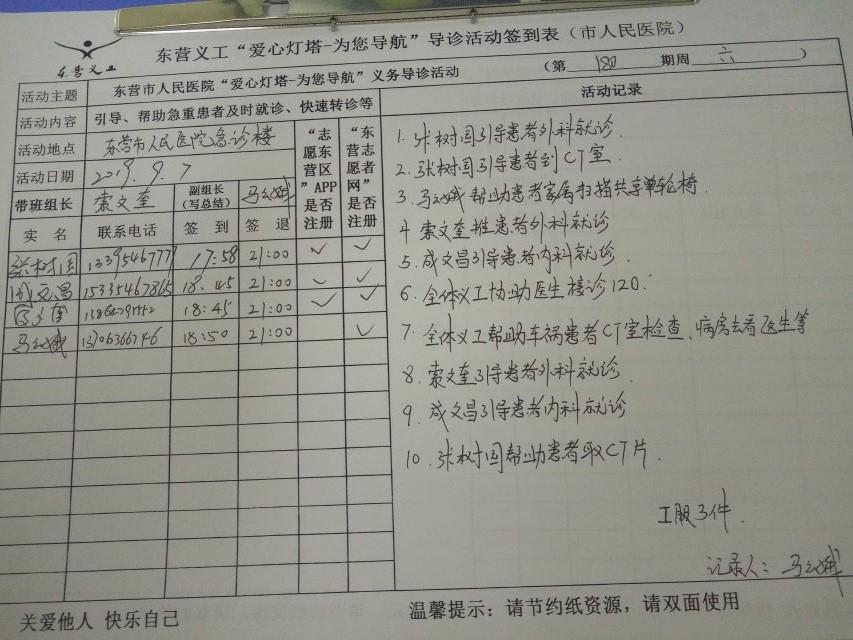 东营义工
东营义工“爱心灯塔-为您导航”导诊活动签到表（市人民医院）
（第 180 期周 六 ）
活动主题 东营市人民医院“爱心灯塔-为您导航”义务导诊活动
活动内容 引导、帮助急重患者及时就诊、快速转诊等
活动地点 东营市人民医院急诊楼
活动日期 2019.9.7
带班组长 索文奎 副组长（写总结）
“志愿东营区”APP是否注册
“东营志愿者网”是否注册
实名 联系电话 签到 签退
张树国 17:58 21:00 ✓ ✓
成文昌 15335467865 18:45 21:00 ✓ ✓
18:45 21:00 ✓ ✓
18:50 21:00 ✓
活动记录
1. 张树国引导患者外科就诊.
2. 张树国引导患者到CT室.
3. 帮助患者家属扫描共享单轮椅.
4 索文奎推患者外科就诊
5. 成文昌引导患者内科就诊
6. 全体义工协助医生接诊120.
7. 全体义工帮助车祸患者CT室检查、病房去看医生等
8. 索文奎引导患者外科就诊.
9. 成文昌引导患者内科就诊
10. 张树国帮助患者取CT片.
工服3件.
记录人：
关爱他人 快乐自己
温馨提示：请节约纸资源，请双面使用